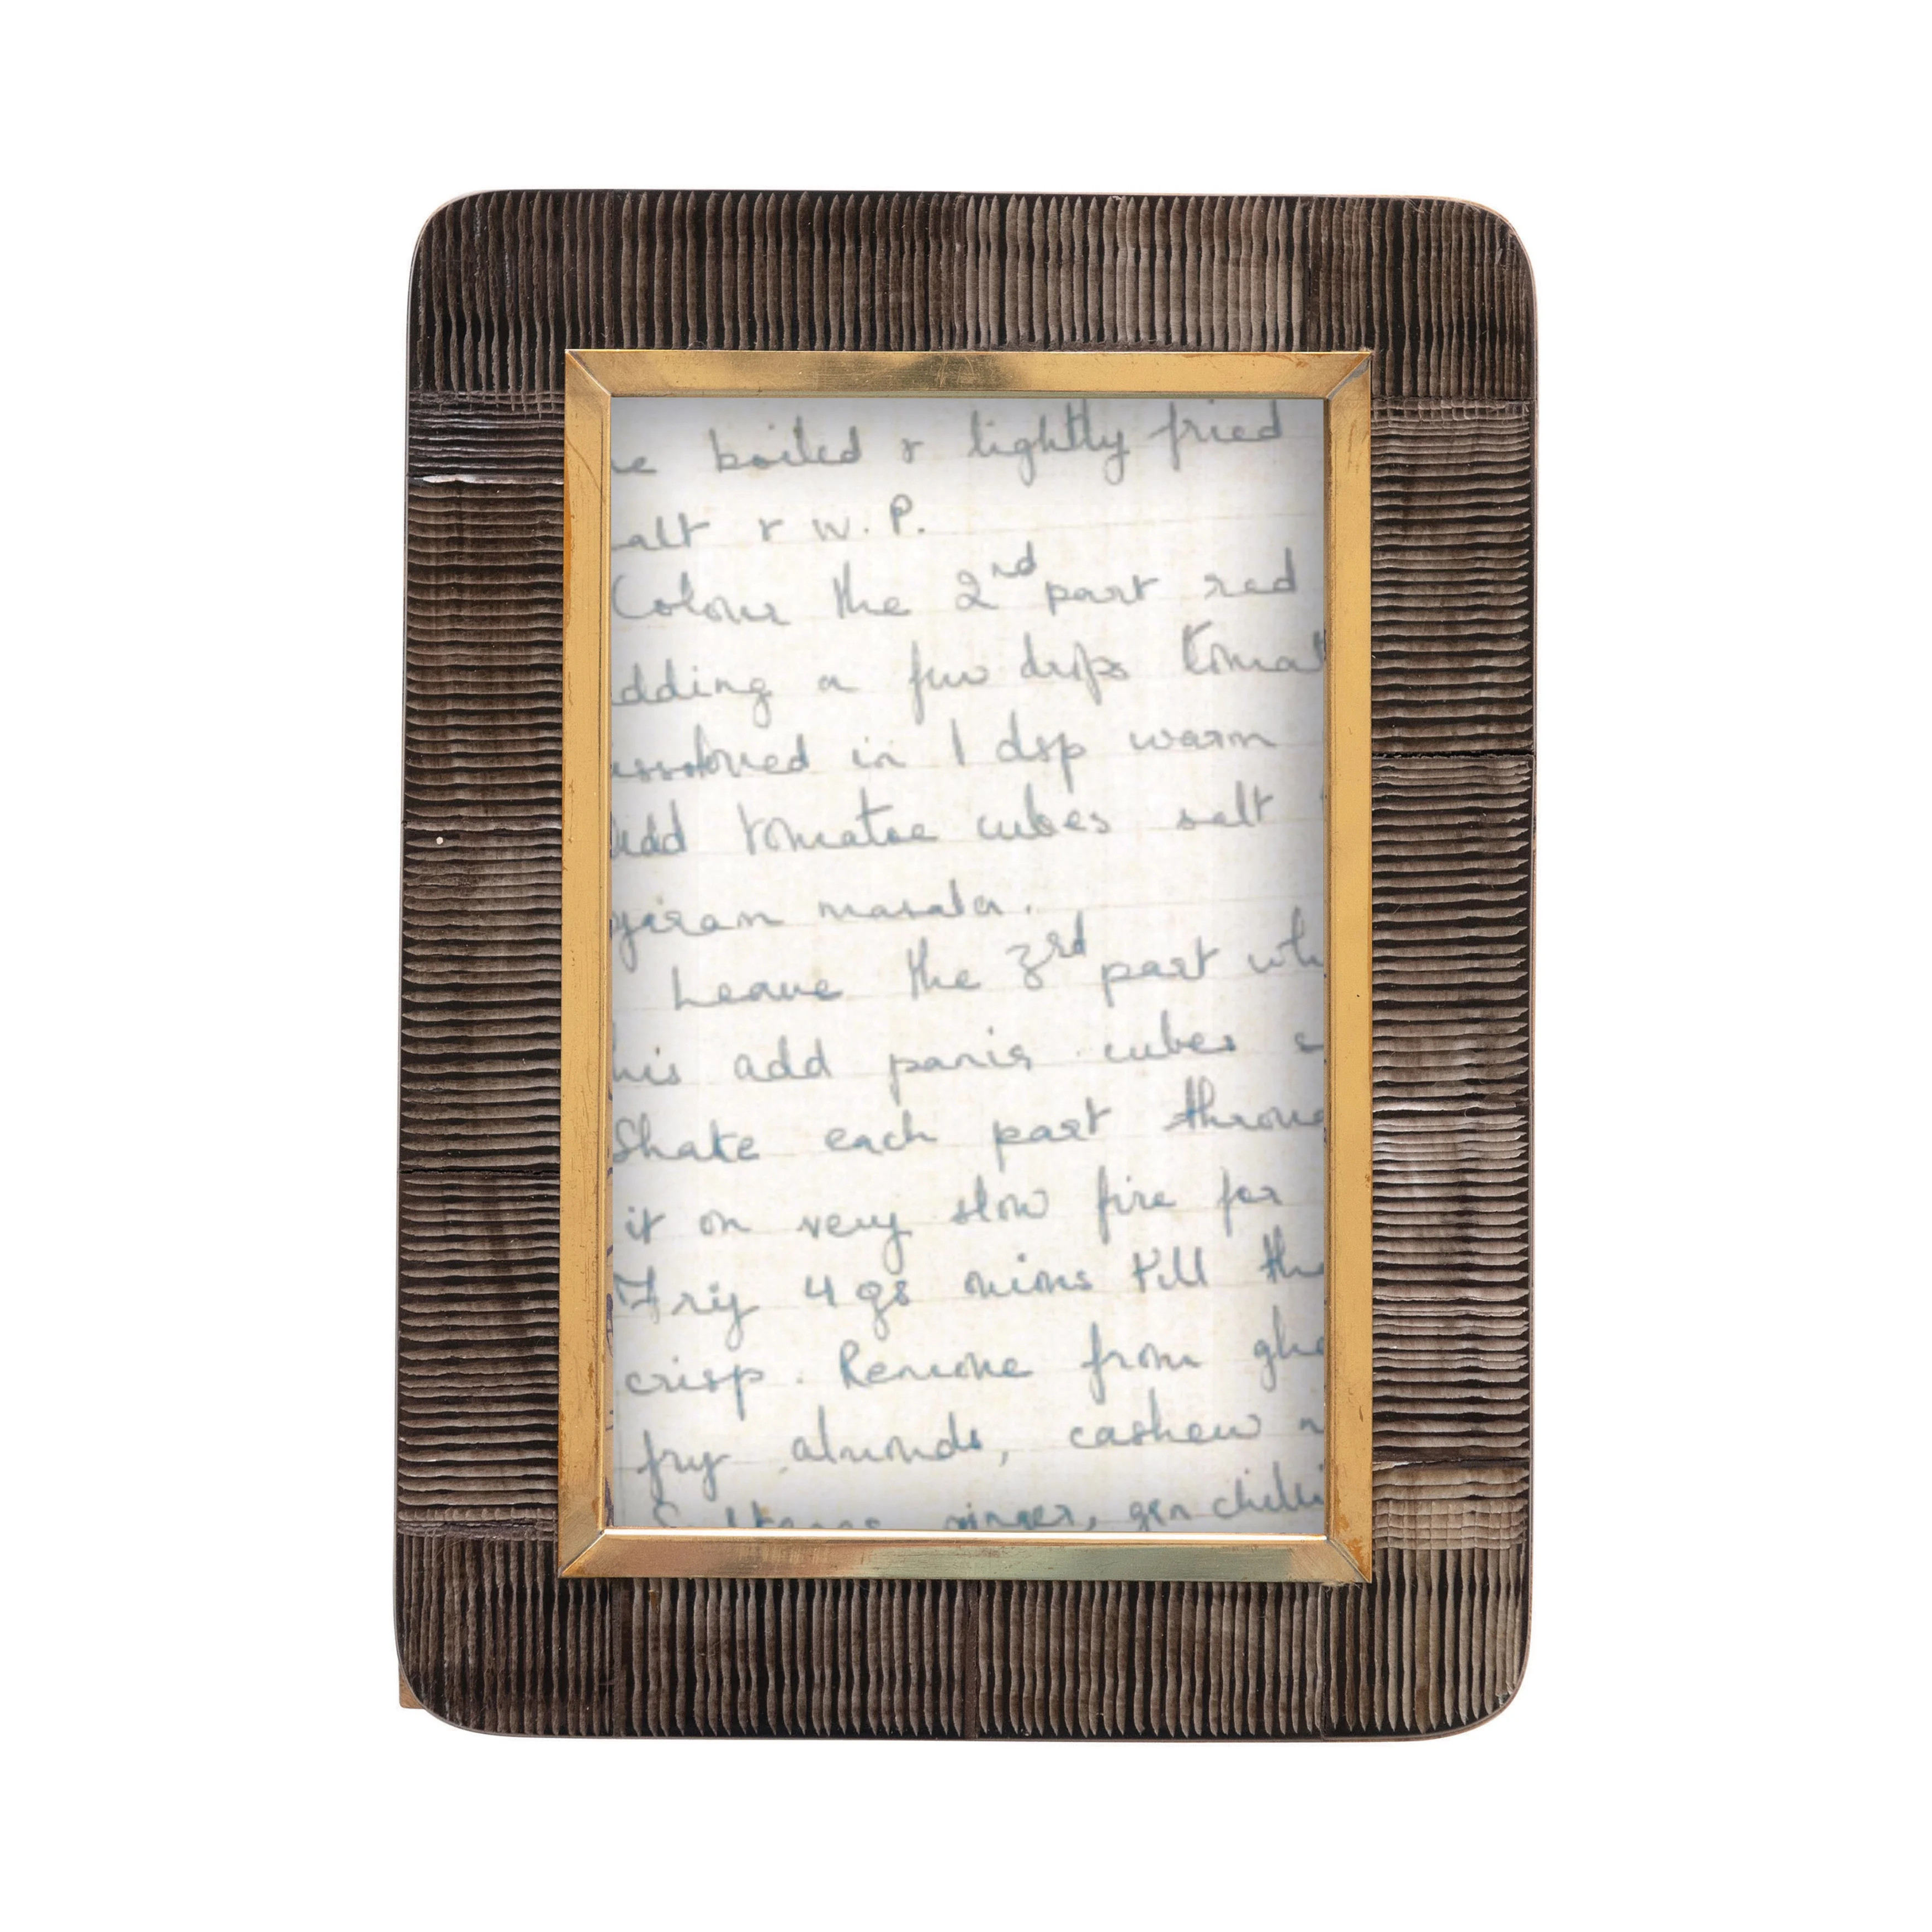 boiled & lightly fried
alt & W.P.
Colour the 2nd part red
dding a few drops tomat
issolved in 1 dsp warm
Add tomatoe cubes salt
garam masala.
Leave the 3rd part wh
his add panir cubes s
Shake each part throug
it on very slow fire for
Fry 4 gs onions till the
crisp. Remove from ghe
fry almonds, cashew n
Sultanas ginger, grn chilli